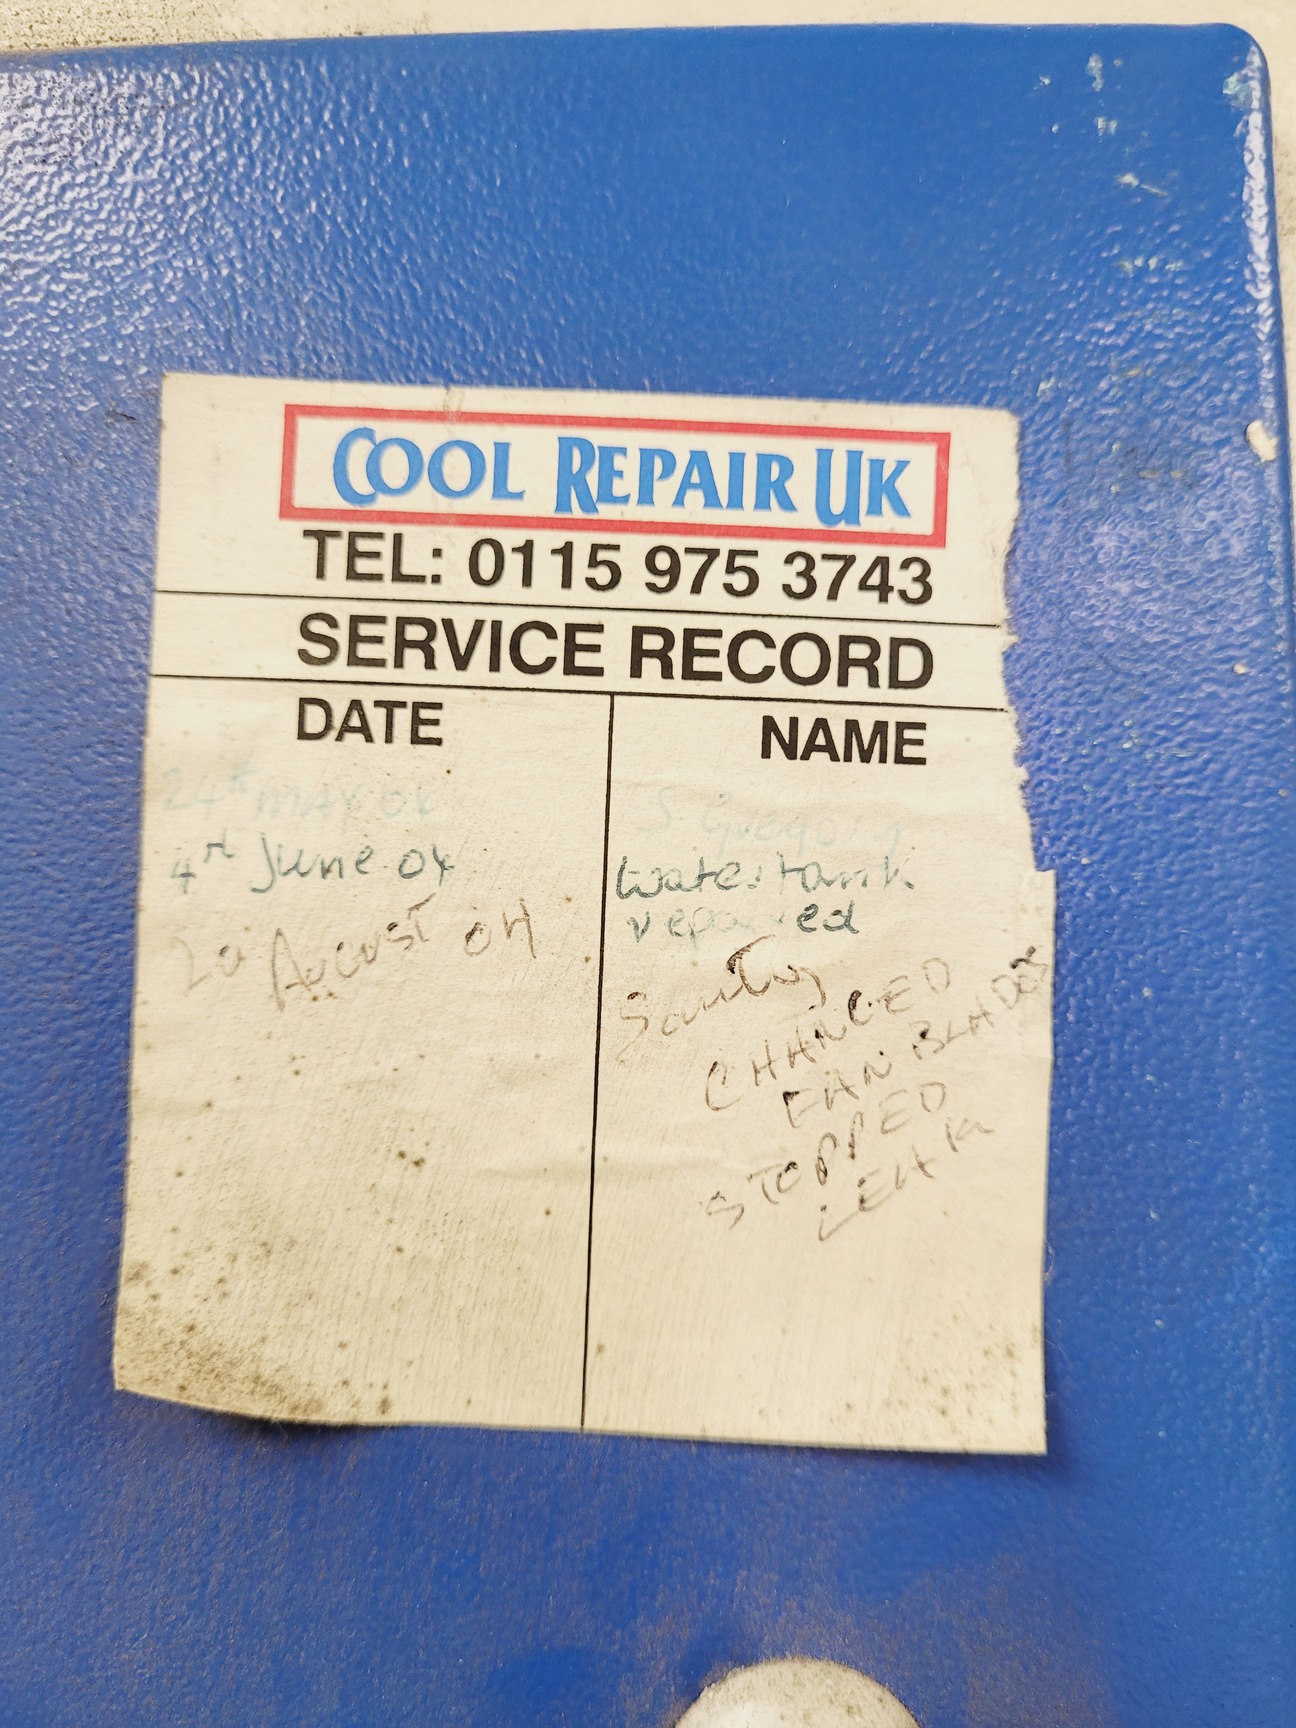 COOL REPAIR UK
TEL: 0115 975 3743
SERVICE RECORD
DATE NAME
24th MAY 04 S Gregory
4th June 04 Water tank
repaired
August 04
CHANGED
FAN BLADES
STOPPED
LEAK